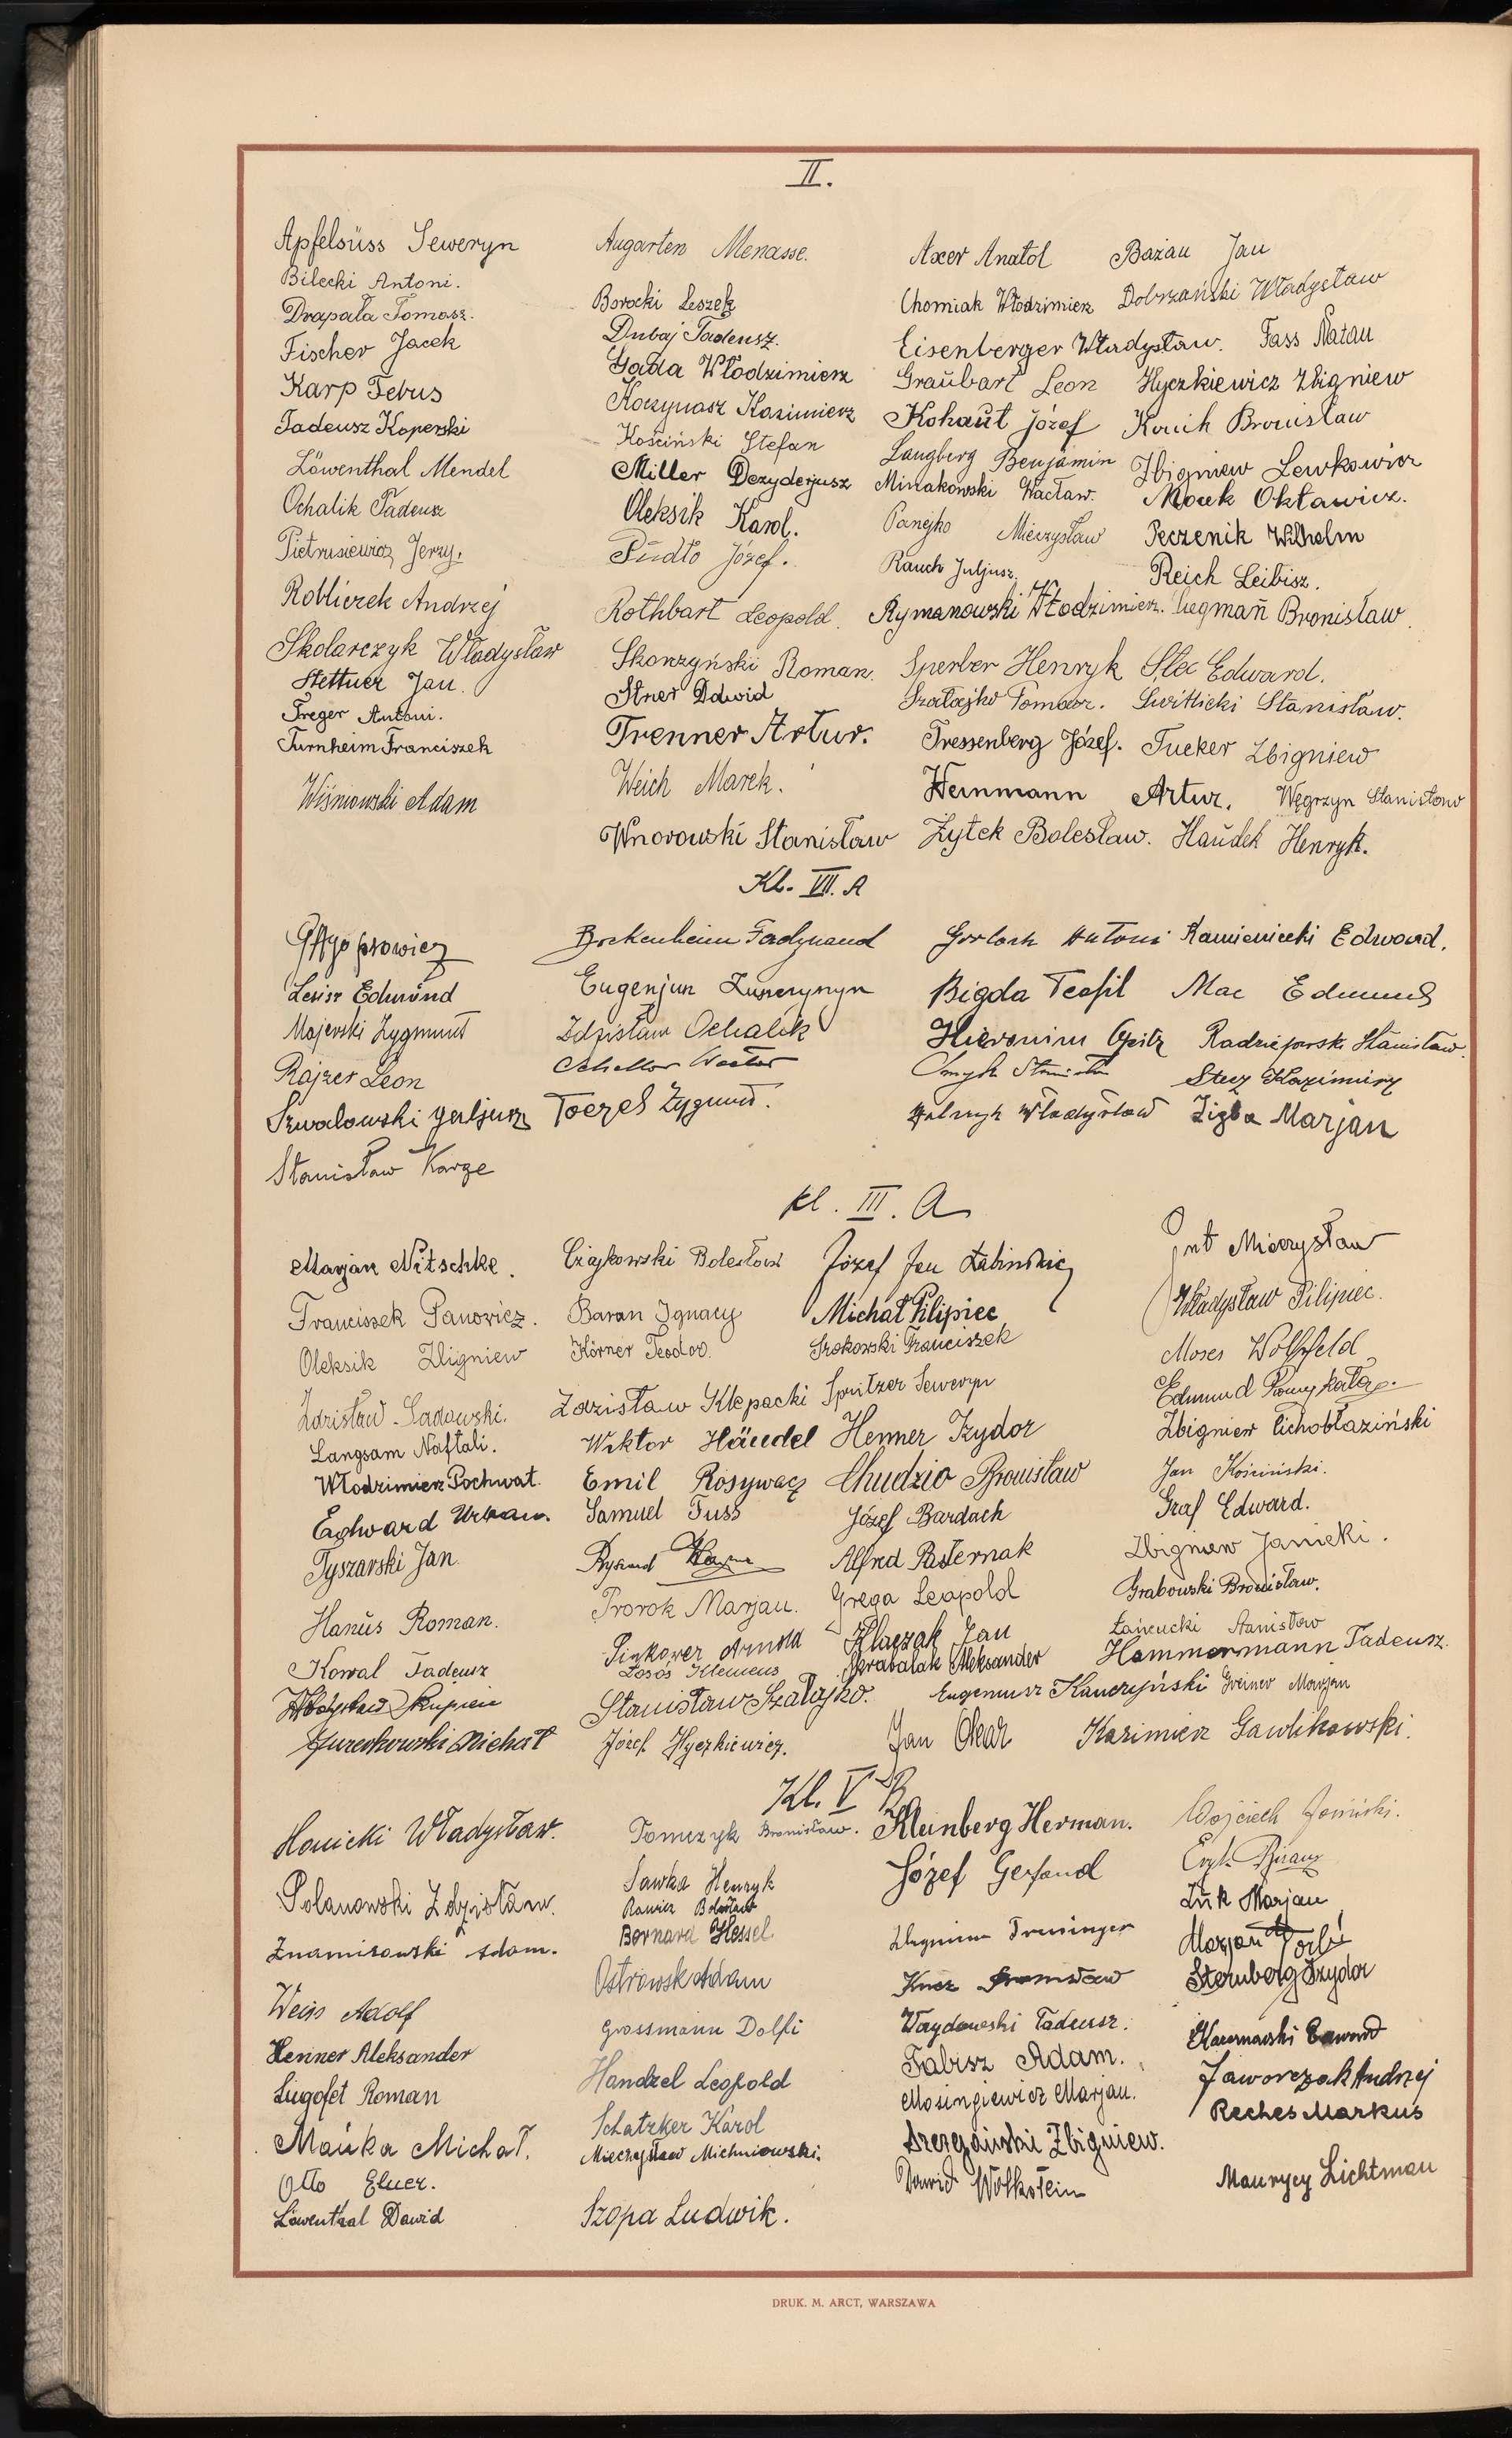 II.
Apfelsüss Seweryn Augarten Menasse. Axer Anatol Bażan Jan
Bilecki Antoni. Borocki Leszek Chomiak Włodzimierz Dobrzański Władysław
Drapała Tomasz. Dubaj Tadeusz. Eisenberger Władysław. Fass Natan
Fischer Jacek Gada Włodzimierz Graubart Leon Hyczkiewicz Zbigniew
Karp Febus Koczynasz Kazimierz Kohaut Józef Konik Bronisław
Tadeusz Koperski Kościński Stefan Langberg Benjamin Zbigniew Lewkowicz
Löwenthal Mendel Miller Dezyderjusz Minakowski Wacław. Morek Oktawicz.
Ochalik Tadeusz Oleksik Karol. Panejko Mieczysław Peczenik Wilhelm
Pietrusiewicz Jerzy. Pudło Józef. Rauch Juljusz. Reich Leibisz.
Roblicrek Andrzej Rothbart Leopold. Rymanowski Włodzimierz. Bronisław.
Skolarczyk Władysław Skorzyński Roman. Sperber Henryk Stec Edward.
Stettner Jan. Stner Dawid Szałajko Tomasz. Switlicki Stanisław.
Treger Antoni. Trenner Artur. Tressenberg Józef. Tucker Zbigniew
Turnheim Franciszek Weich Marek. Weinmann Artur. Węgrzyn Stanisław
Wiśniowski Adam Wnorowski Stanisław Żytek Bolesław. Haudek Henryk.
Kl. VII. A
Bockenheim Ferdynand Gorlach Antoni Kamieniecki Edward.
Leiser Edmund Eugenjusz Bigda Teofil Mac Edmund
Majewski Zygmunt Zdzisław Ochalik Hieronim Opitz Radziejowski Stanisław.
Rajzer Leon Scheller Wiktor Smyk Stanisław Stecz Kazimierz
Szwalowski Juljusz Toczek Zygmunt. Władysław Zięba Marjan
Stanisław Karge
kl. III. A
Marjan Nitschke. Czajkowski Bolesław Józef Jan Łabiński Mieczysław
Franciszek Panowicz. Baran Ignacy Michał Pilipiec Władysław Pilipiec.
Oleksik Zbigniew Körner Teodor. Srokowski Franciszek Moses Wohlfeld
Zdzisław Sadowski. Zdzisław Klepacki Spritzer Seweryn Edmund
Langsam Naftali. Wiktor Händel Henner Izydor Zbigniew Cichobłaziński
Włodzimierz Pochwat. Emil Rosywacz Chudzio Bronisław Jan Kościński.
Edward Urban. Samuel Fuss Józef Bardach Graf Edward.
Tyszarski Jan. Ryszard Alfred Pasternak Zbigniew Janicki.
Hanus Roman. Prorok Marjan. Grega Leopold Grabowski Bronisław.
Kowal Tadeusz Pinkower Arnold Klaczak Jan Łańcucki Stanisław
Łosoś Klemens Skrabalak Aleksander Hammermann Tadeusz.
Władysław Skupień Stanisław Szałajko. Eugenjusz Kanczyński Greiner Marjan
Jurechowski Michał Józef Hyczkiewicz. Jan Okar Kazimierz Gawlikowski.
Kl. V B
Honicki Władysław. Tomczyk Bronisław. Kleinberg Herman. Wojciech Jasiński.
Polanowski Zdzisław. Sawka Henryk Józef Gerfand
Rawicz Bolesław Luk Marjan
Znamirowski Adam. Bernard Hessel. Zbigniew Treisinger Marjan
Weiss Adolf Ostrowski Adam Kusz Bronisław Sternberg Izydor
Henner Aleksander Grossmann Dolfi Waydowski Tadeusz. Kaczmarski Edward
Lugofet Roman Handzel Leopold Fabisz Adam. Jaworczak Andrzej
Mańka Michał. Schatzker Karol Mosingiewicz Marjan. Reches Markus
Otto Elner. Mieczysław Michniowski. Szczegański Zbigniew.
Löwenthal Dawid Szopa Ludwik. Dawid Wolkstein Maurycy Lichtman
DRUK. M. ARCT, WARSZAWA